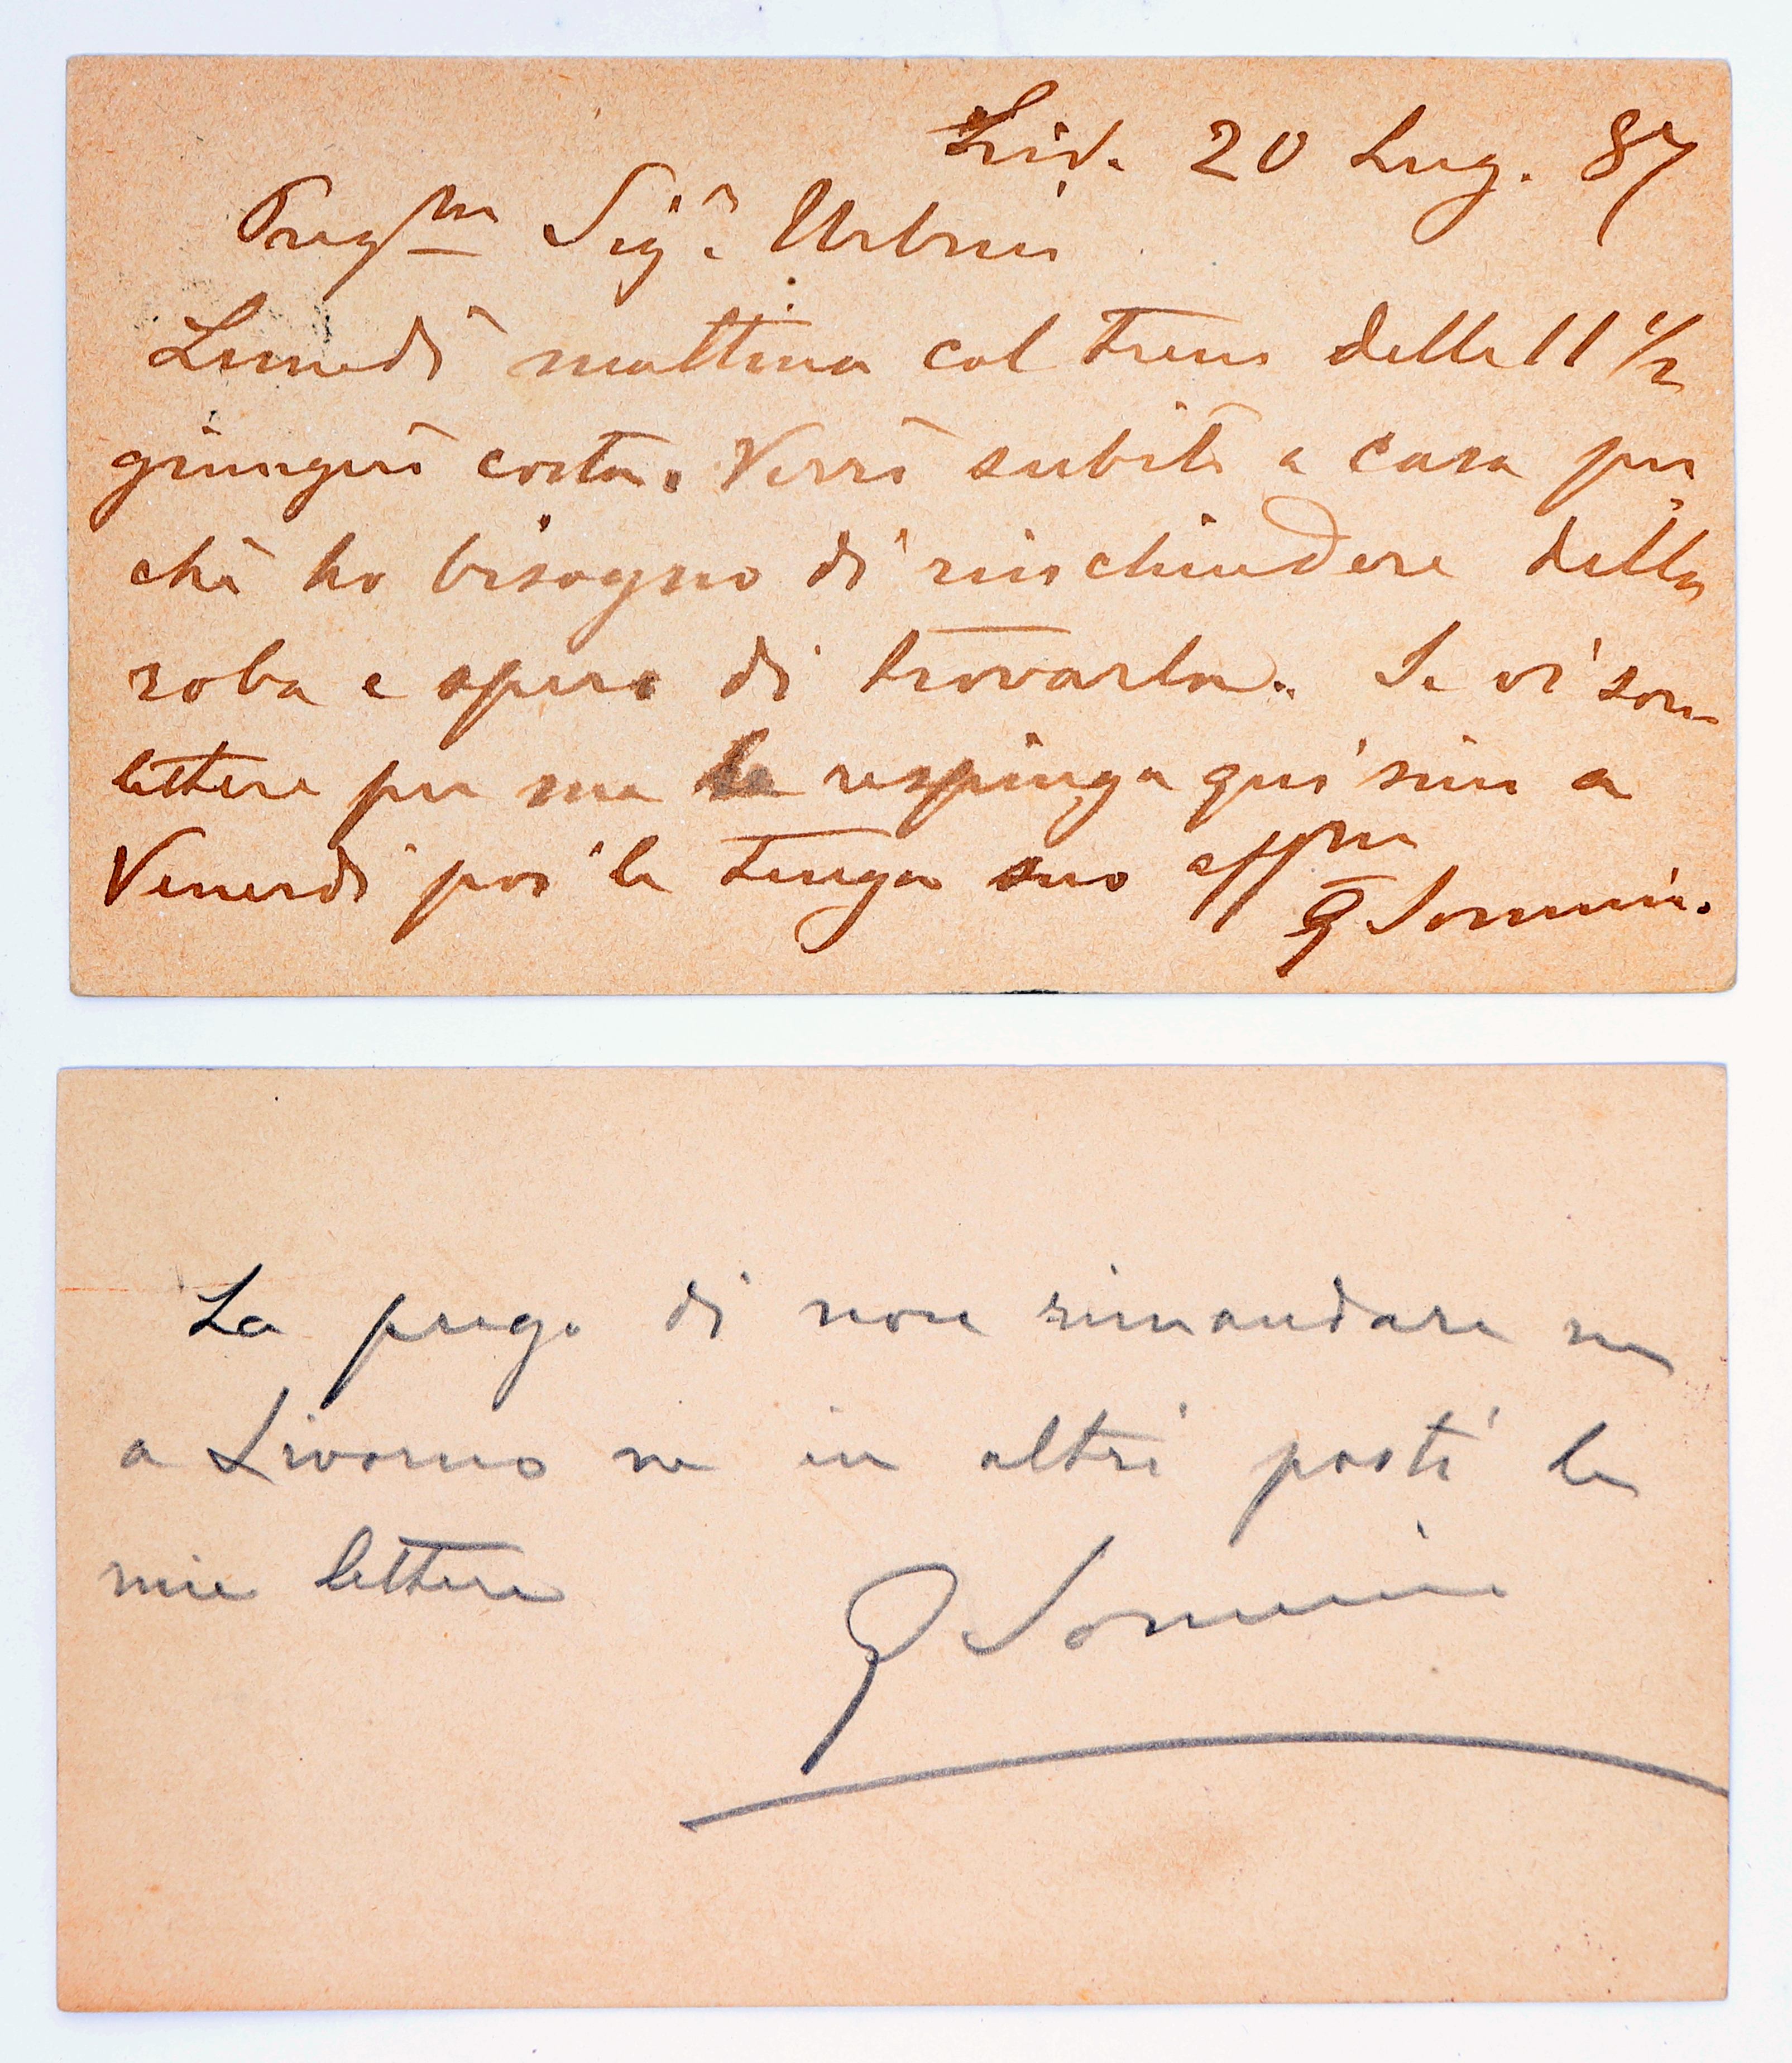 Liv. 20 Lug. 87
Pregm Sigr Urbini
Lunedì mattina col treno delle 11 1/2
giungerò costà. Verrò subito a casa per
chè ho bisogno di rinchiudere della
roba e spero di trovarla. Se vi sono
lettere per me le respinga qui sino a
Venerdì poi le tenga suo affmo
G Sommi.
La prego di non rimandare ne
a Livorno ne in altri posti le
mie lettere
G Sommi